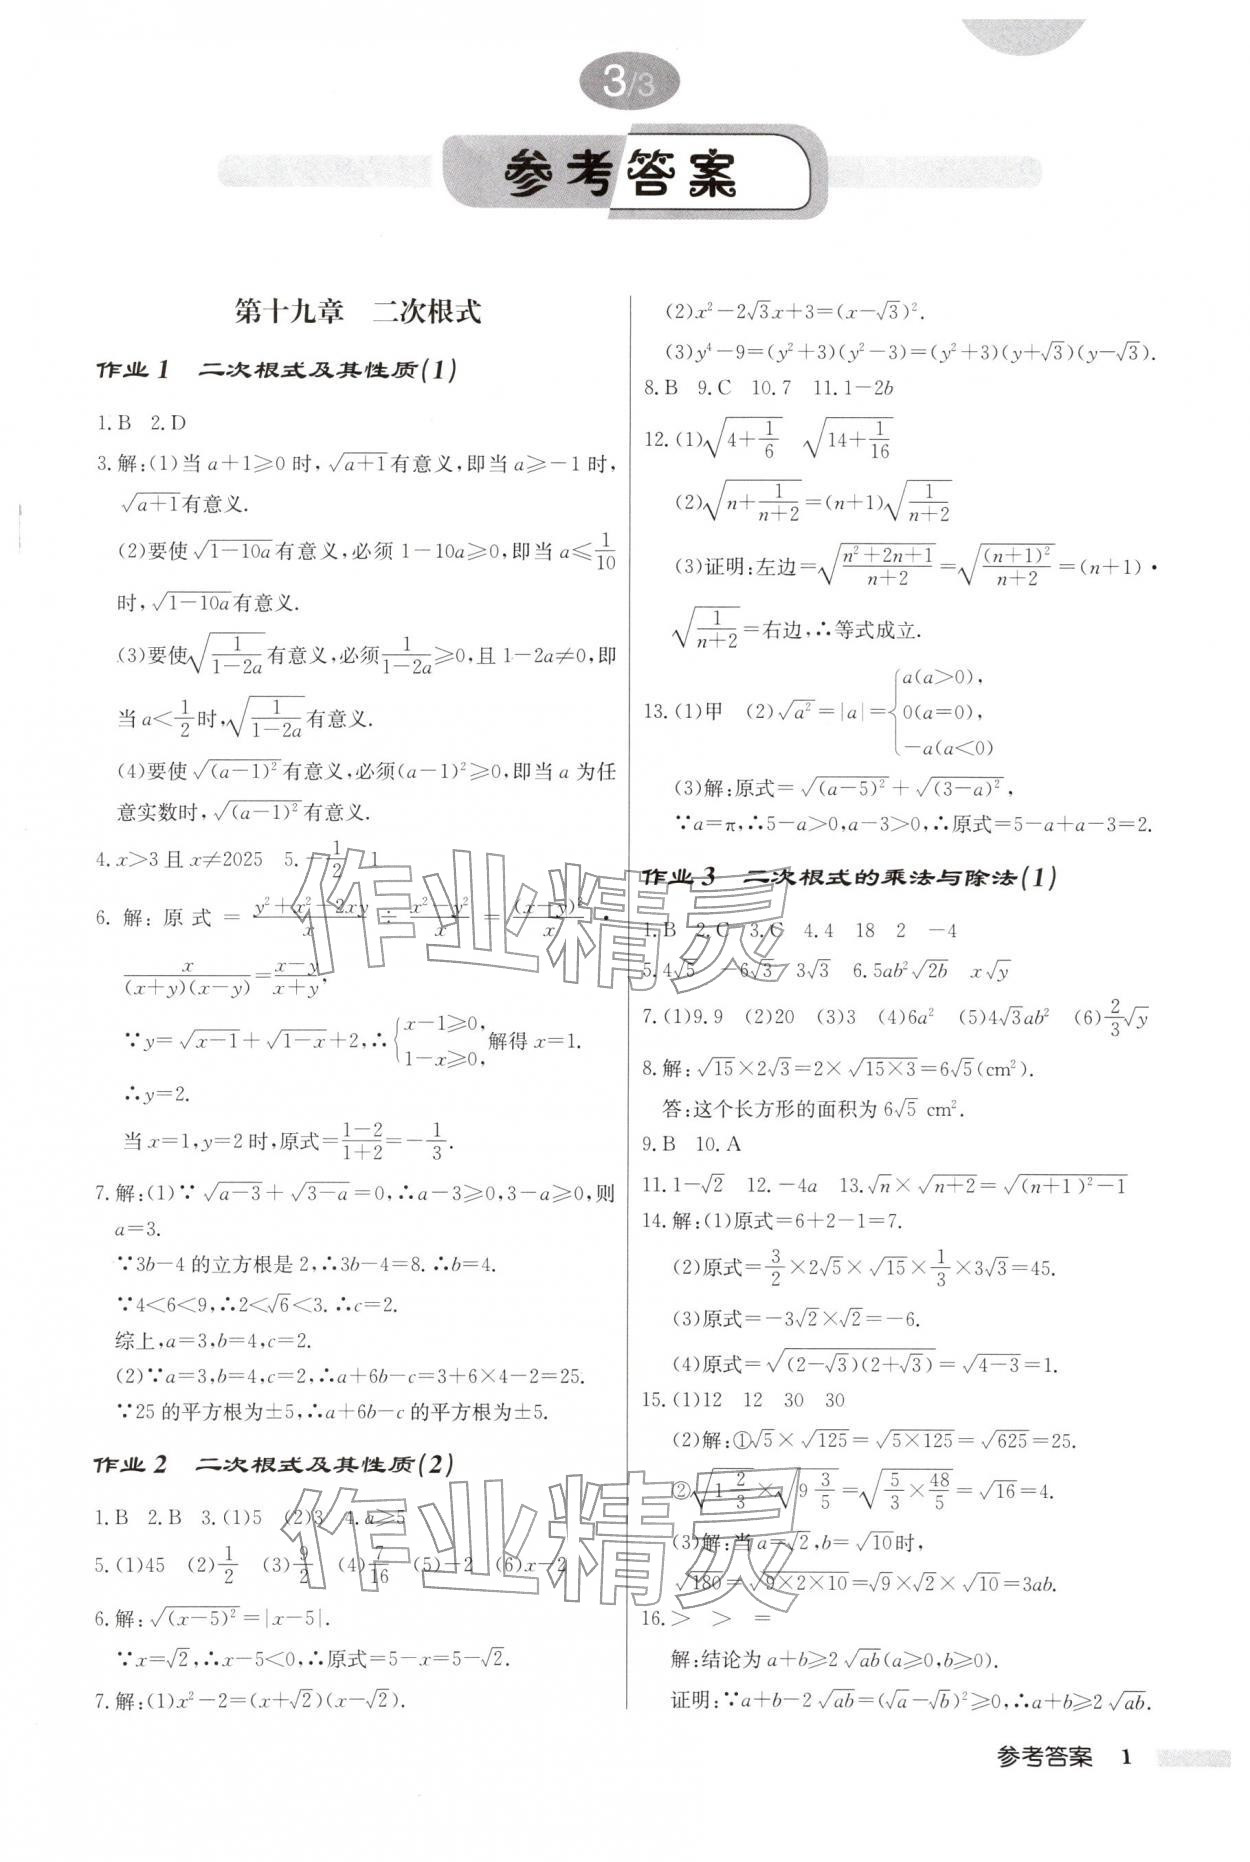 3/3
参考答案
第十九章 二次根式
作业1 二次根式及其性质(1)
1.B 2.D
3.解:(1)当a+1≥0时,√(a+1)有意义,即当a≥−1时,
√(a+1)有意义.
(2)要使√(1−10a)有意义,必须1−10a≥0,即当a≤1/10
时,√(1−10a)有意义.
(3)要使√(1/(1−2a))有意义,必须1/(1−2a)≥0,且1−2a≠0,即
当a<1/2时,√(1/(1−2a))有意义.
(4)要使√((a−1)²)有意义,必须(a−1)²≥0,即当a为任
意实数时,√((a−1)²)有意义.
4.x>3且x≠2025 5.−1/2 1
6.解:原式=(y²+x²−2xy)/x÷(x²−y²)/x=(x−y)²/x·
x/((x+y)(x−y))=(x−y)/(x+y),
∵y=√(x−1)+√(1−x)+2,∴{x−1≥0, 1−x≥0, 解得x=1.
∴y=2.
当x=1,y=2时,原式=(1−2)/(1+2)=−1/3.
7.解:(1)∵√(a−3)+√(3−a)=0,∴a−3≥0,3−a≥0,则
a=3.
∵3b−4的立方根是2,∴3b−4=8.∴b=4.
∵4<6<9,∴2<√6<3.∴c=2.
综上,a=3,b=4,c=2.
(2)∵a=3,b=4,c=2,∴a+6b−c=3+6×4−2=25.
∵25的平方根为±5,∴a+6b−c的平方根为±5.
作业2 二次根式及其性质(2)
1.B 2.B 3.(1)5 (2)3 4.a≥5
5.(1)45 (2)1/2 (3)9/2 (4)7/16 (5)−2 (6)x−2
6.解:√((x−5)²)=|x−5|.
∵x=√2,∴x−5<0,∴原式=5−x=5−√2.
7.解:(1)x²−2=(x+√2)(x−√2).
(2)x²−2√3x+3=(x−√3)².
(3)y⁴−9=(y²+3)(y²−3)=(y²+3)(y+√3)(y−√3).
8.B 9.C 10.7 11.1−2b
12.(1)√(4+1/6) √(14+1/16)
(2)√(n+1/(n+2))=(n+1)√(1/(n+2))
(3)证明:左边=√((n²+2n+1)/(n+2))=√((n+1)²/(n+2))=(n+1)·
√(1/(n+2))=右边,∴等式成立.
13.(1)甲 (2)√(a²)=|a|={a(a>0), 0(a=0), −a(a<0)
(3)解:原式=√((a−5)²)+√((3−a)²),
∵a=π,∴5−a>0,a−3>0,∴原式=5−a+a−3=2.
作业3 二次根式的乘法与除法(1)
1.B 2.C 3.C 4.4 18 2 −4
5.4√5 −6√3 3√3 6.5ab²√(2b) x√y
7.(1)9.9 (2)20 (3)3 (4)6a² (5)4√3ab² (6)2/3√y
8.解:√15×2√3=2×√(15×3)=6√5(cm²).
答:这个长方形的面积为6√5 cm².
9.B 10.A
11.1−√2 12.−4a 13.√n×√(n+2)=√((n+1)²−1)
14.解:(1)原式=6+2−1=7.
(2)原式=3/2×2√5×√15×1/3×3√3=45.
(3)原式=−3√2×√2=−6.
(4)原式=√((2−√3)(2+√3))=√(4−3)=1.
15.(1)12 12 30 30
(2)解:①√5×√125=√(5×125)=√625=25.
②√(1 2/3)×√(9 3/5)=√(5/3×48/5)=√16=4.
(3)解:当a=√2,b=√10时,
√180=√(9×2×10)=√9×√2×√10=3ab.
16.> > =
解:结论为a+b≥2√(ab)(a≥0,b≥0).
证明:∵a+b−2√(ab)=(√a−√b)²≥0,∴a+b≥2√(ab).
作业精灵
作业精灵
参考答案 1